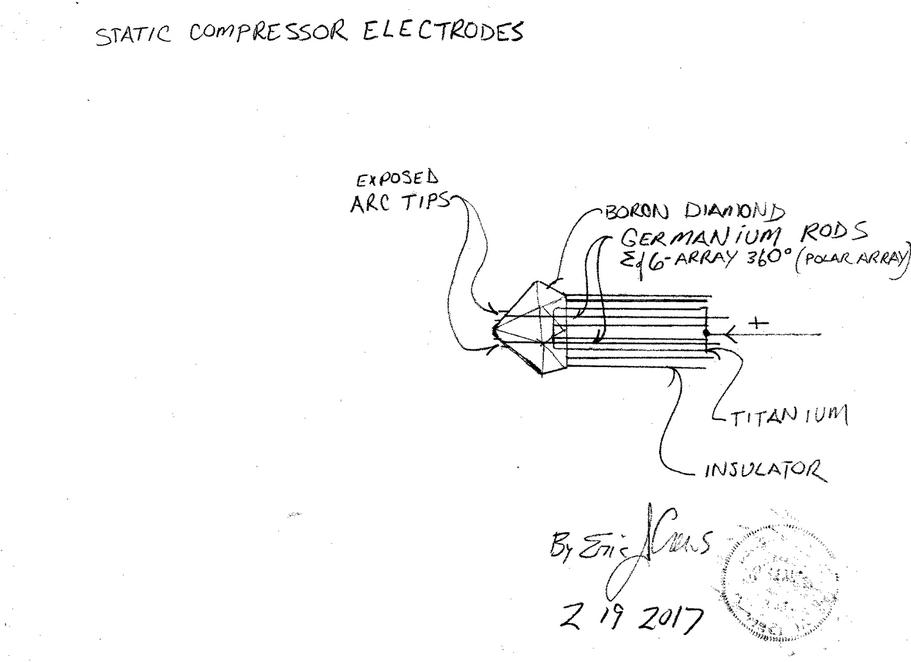 STATIC COMPRESSOR ELECTRODES
EXPOSED
ARC TIPS
BORON DIAMOND
GERMANIUM RODS
6-ARRAY 360° (POLAR ARRAY)
+
TITANIUM
INSULATOR
By Eric J
2 19 2017